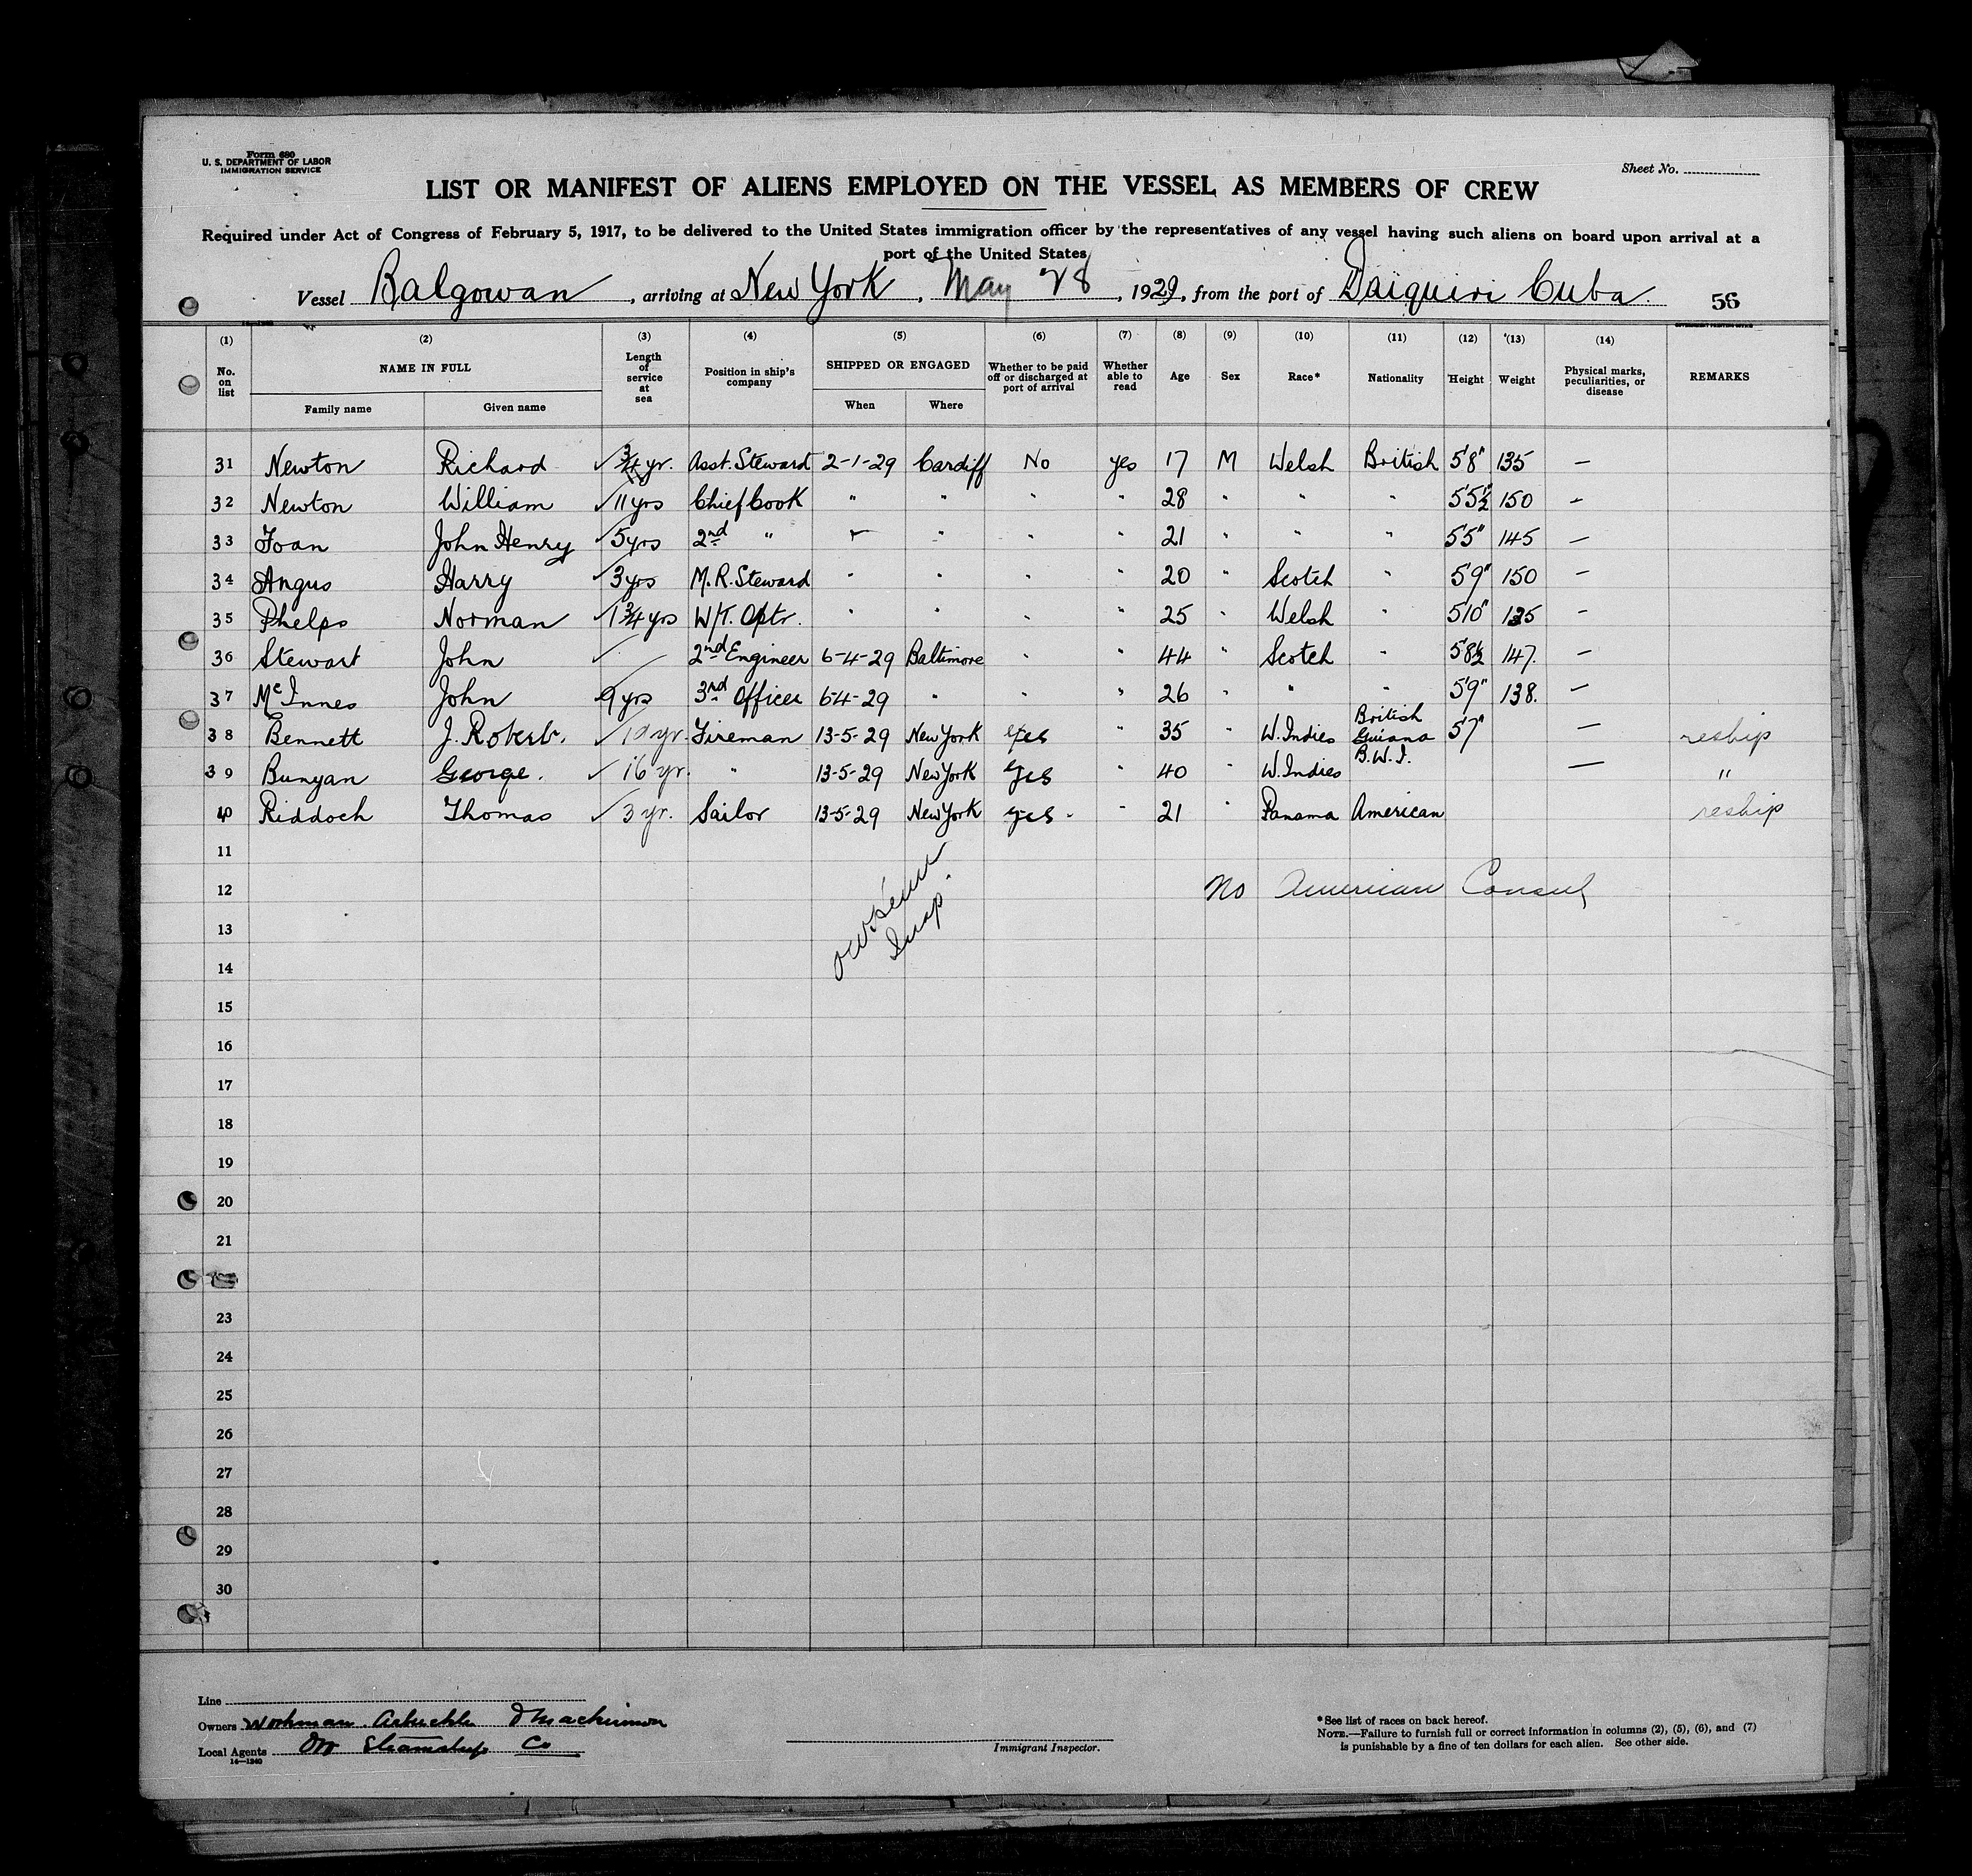 Form 680
U. S. DEPARTMENT OF LABOR
IMMIGRATION SERVICE
Sheet No.
LIST OR MANIFEST OF ALIENS EMPLOYED ON THE VESSEL AS MEMBERS OF CREW
Required under Act of Congress of February 5, 1917, to be delivered to the United States immigration officer by the representatives of any vessel having such aliens on board upon arrival at a
port of the United States
Vessel Balgowan, arriving at New York, May 28, 1929, from the port of Daiquiri Cuba. 56
(1) (2) (3) (4) (5) (6) (7) (8) (9) (10) (11) (12) (13) (14)
No. on list NAME IN FULL Family name Given name Length of service at sea Position in ship's company SHIPPED OR ENGAGED When Where Whether to be paid off or discharged at port of arrival Whether able to read Age Sex Race* Nationality Height Weight Physical marks, peculiarities, or disease REMARKS
31 Newton Richard ✓ 3/4 yr. Asst. Steward 2-1-29 Cardiff No yes 17 M Welsh British 5'8" 135 —
32 Newton William ✓ 11 yrs Chief Cook " " " " 28 " " " 5'5½" 150 —
33 Foan John Henry ✓ 5 yrs 2nd " " " " " 21 " " " 5'5" 145 —
34 Angus Harry ✓ 3 yrs M. R. Steward " " " " 20 " Scotch " 5'9" 150 —
35 Phelps Norman ✓ 1 3/4 yrs W/T. Optr. " " " " 25 " Welsh " 5'10" 135 —
36 Stewart John ✓ 2nd Engineer 6-4-29 Baltimore " " 44 " Scotch " 5'8½ 147. —
37 McInnes John 9 yrs 3rd Officer 6-4-29 " " " 26 " " " 5'9" 138. —
38 Bennett J. Robert. ✓ yr. Fireman 13-5-29 New York Yes " 35 " W. Indies British Guiana 5'7" — reship
39 Bunyan George. ✓ 16 yr. " 13-5-29 New York Yes " 40 " W. Indies B.W.I. — "
40 Riddoch Thomas ✓ 3 yr. Sailor 13-5-29 New York Yes. " 21 " Panama American reship
11
12 No American Consul
13
Insp.
14
15
16
17
18
19
20
21
23
24
25
26
27
28
29
30
Line
Owners Workman Arbuckle & Mackinnon
Local Agents Steamship Co
14—1240
Immigrant Inspector.
*See list of races on back hereof.
NOTE.—Failure to furnish full or correct information in columns (2), (5), (6), and (7)
is punishable by a fine of ten dollars for each alien. See other side.